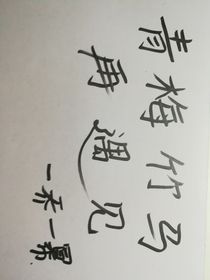 青梅竹马
再遇见
一禾一